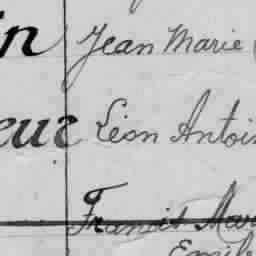 in Jean Marie
eur Léon Antoi
Francis Mar
Emile